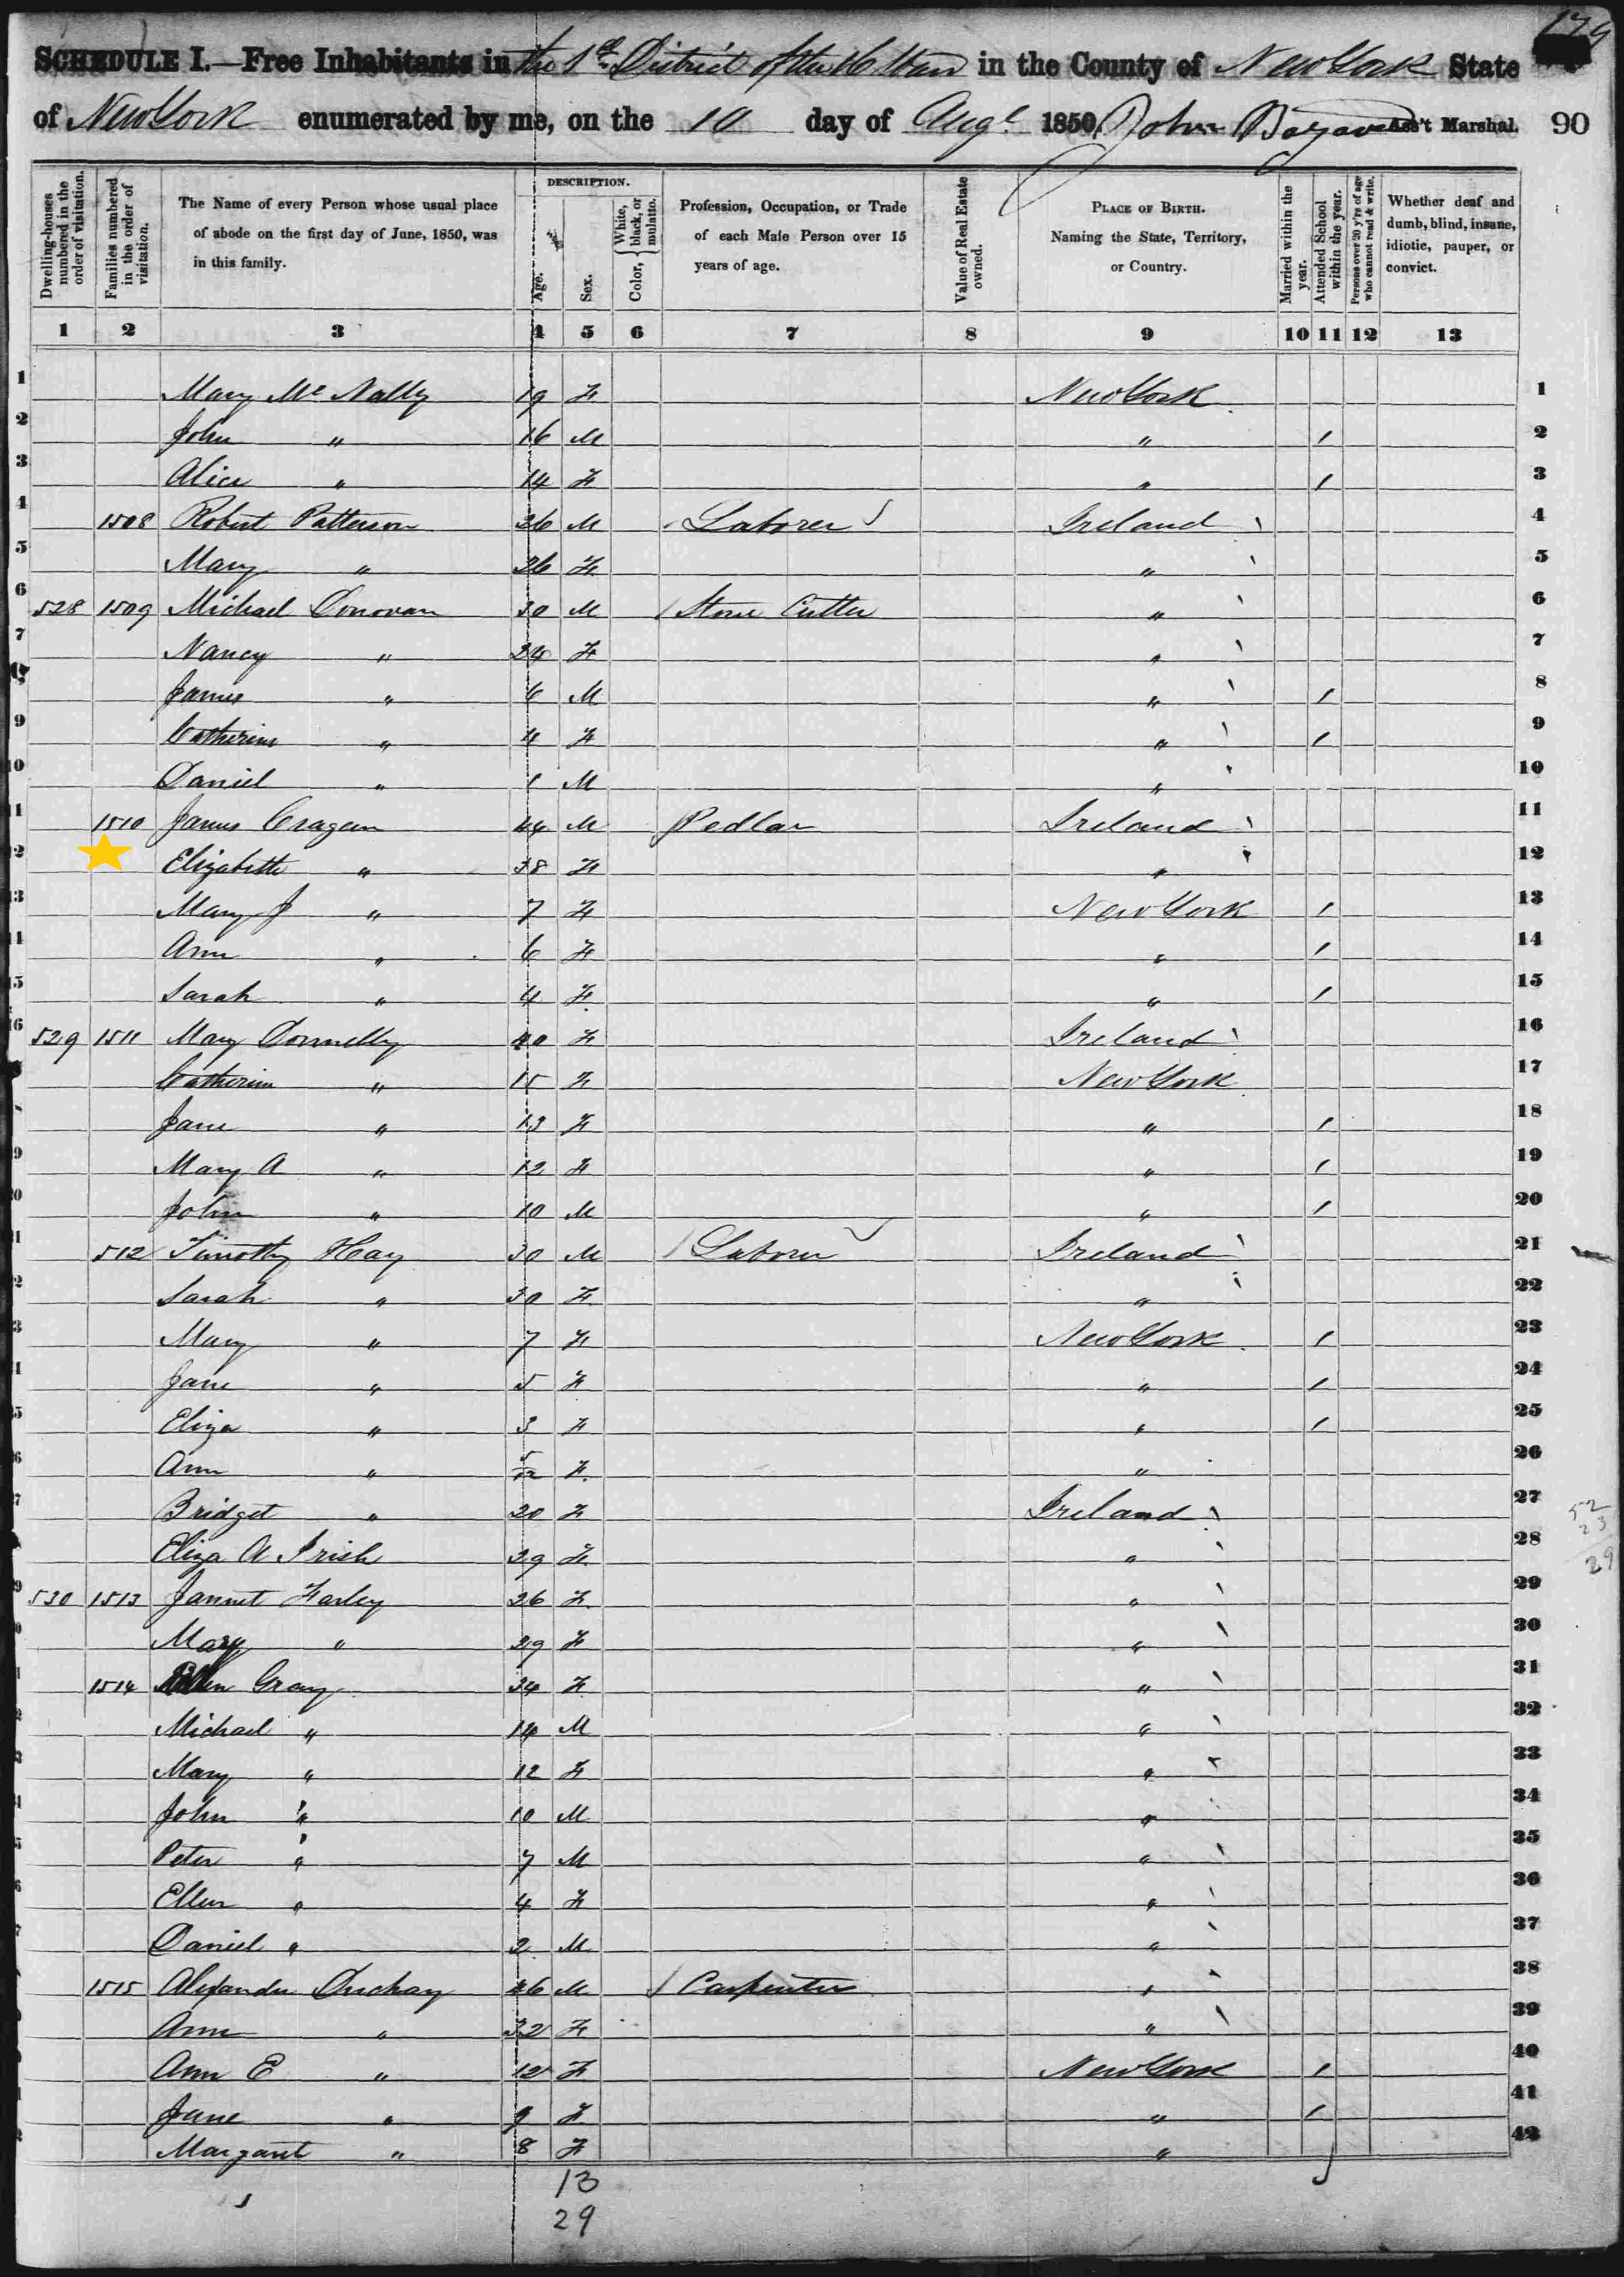 179
SCHEDULE I.—Free Inhabitants in the 1st District of the 16 Ward in the County of New York State
of New York enumerated by me, on the 10 day of Augt 1850. John Ass't Marshal. 90
Dwelling-houses numbered in the order of visitation.
Families numbered in the order of visitation.
The Name of every Person whose usual place of abode on the first day of June, 1850, was in this family.
DESCRIPTION.
Age.
Sex.
Color, White, black, or mulatto.
Profession, Occupation, or Trade of each Male Person over 15 years of age.
Value of Real Estate owned.
PLACE OF BIRTH. Naming the State, Territory, or Country.
Married within the year.
Attended School within the year.
Persons over 20 y'rs of age who cannot read & write.
Whether deaf and dumb, blind, insane, idiotic, pauper, or convict.
1 2 3 4 5 6 7 8 9 10 11 12 13
1 Mary Mc Nally 19 F New York 1
2 John " 16 M " / 2
3 Alice " 14 F " / 3
4 1508 Robert Patterson 26 M Laborer Ireland 4
5 Mary " 26 F " 5
6 528 1509 Michael Donovan 30 M Stone Cutter " 6
7 Nancy " 24 F " 7
James " 6 M " / 8
9 Catherine " 4 F " / 9
10 Daniel " 1 M " 10
11 1510 James Cragen 44 M Pedlar Ireland 11
12 Elizabeth " 38 F " 12
13 Mary J " 7 F New York / 13
14 Ann " 6 F " / 14
15 Sarah " 4 F " / 15
16 529 1511 Mary Donnelly 40 F Ireland 16
Catherine " 15 F New York 17
Jane " 13 F " / 18
19 Mary A " 12 F " / 19
20 John " 10 M " / 20
21 1512 Timothy Hay 30 M Laborer Ireland 21
22 Sarah " 30 F " 22
23 Mary " 7 F New York / 23
24 Jane " 5 F " / 24
25 Eliza " 3 F " / 25
26 Ann " 5/12 F " 26
27 Bridget " 20 F Ireland 27
Eliza A Irish 29 F " 28
29 530 1513 Jannet Farley 26 F " 29
Mary " 29 F " 30
1514 Gray 34 F " 31
Michael " 14 M " 32
Mary " 12 F " 33
John " 10 M " 34
Peter " 7 M " 35
Ellen " 4 F " 36
Daniel " 2 M " 37
1515 Alexander 46 M Carpenter " 38
Ann " 32 F " 39
Ann E " 12 F New York / 40
Jane " 9 F " / 41
Margaret " 8 F " 42
52
23
29
13
29